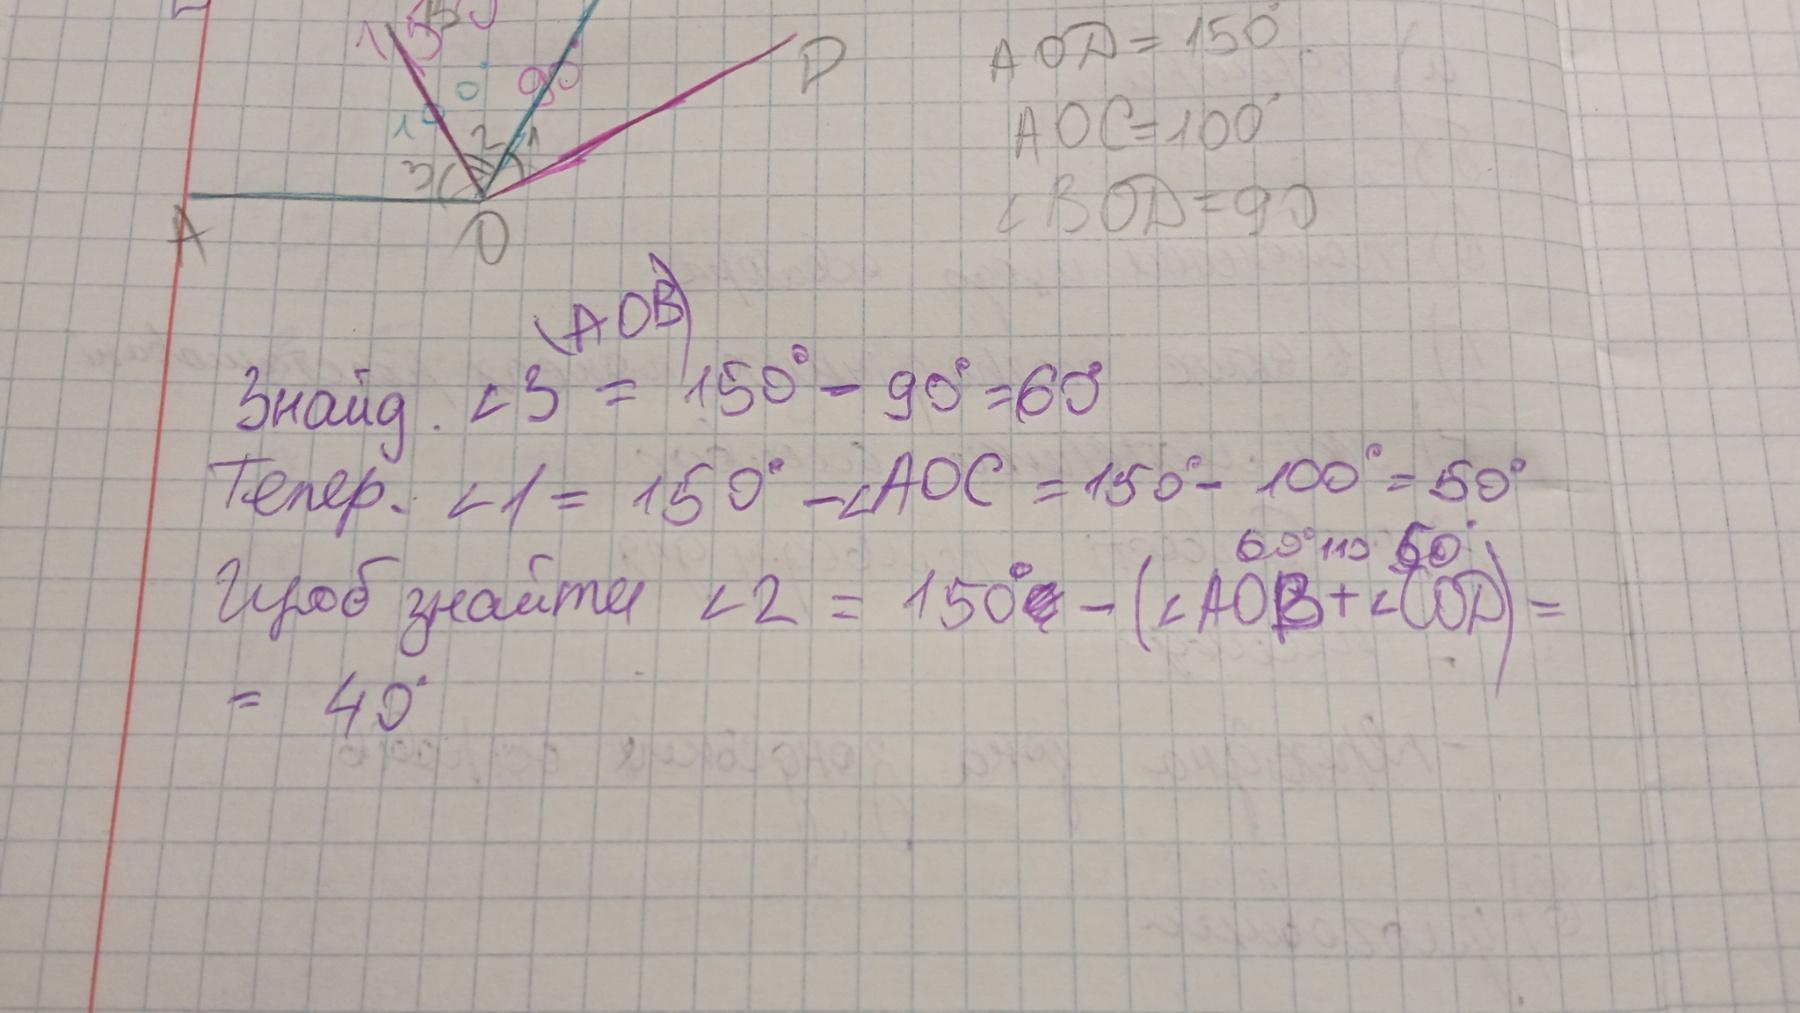 150
90°
100°
D
2
1
3
A
O
AOD = 150°
AOC = 100°
∠BOD = 90
(AOB)
Знайд. ∠3 = 150° - 90° = 60°
Тепер. ∠1 = 150° - ∠AOC = 150° - 100° = 50°
60° 110 50°
Щоб знайти ∠2 = 150° - (∠AOB + ∠COD) =
= 40°